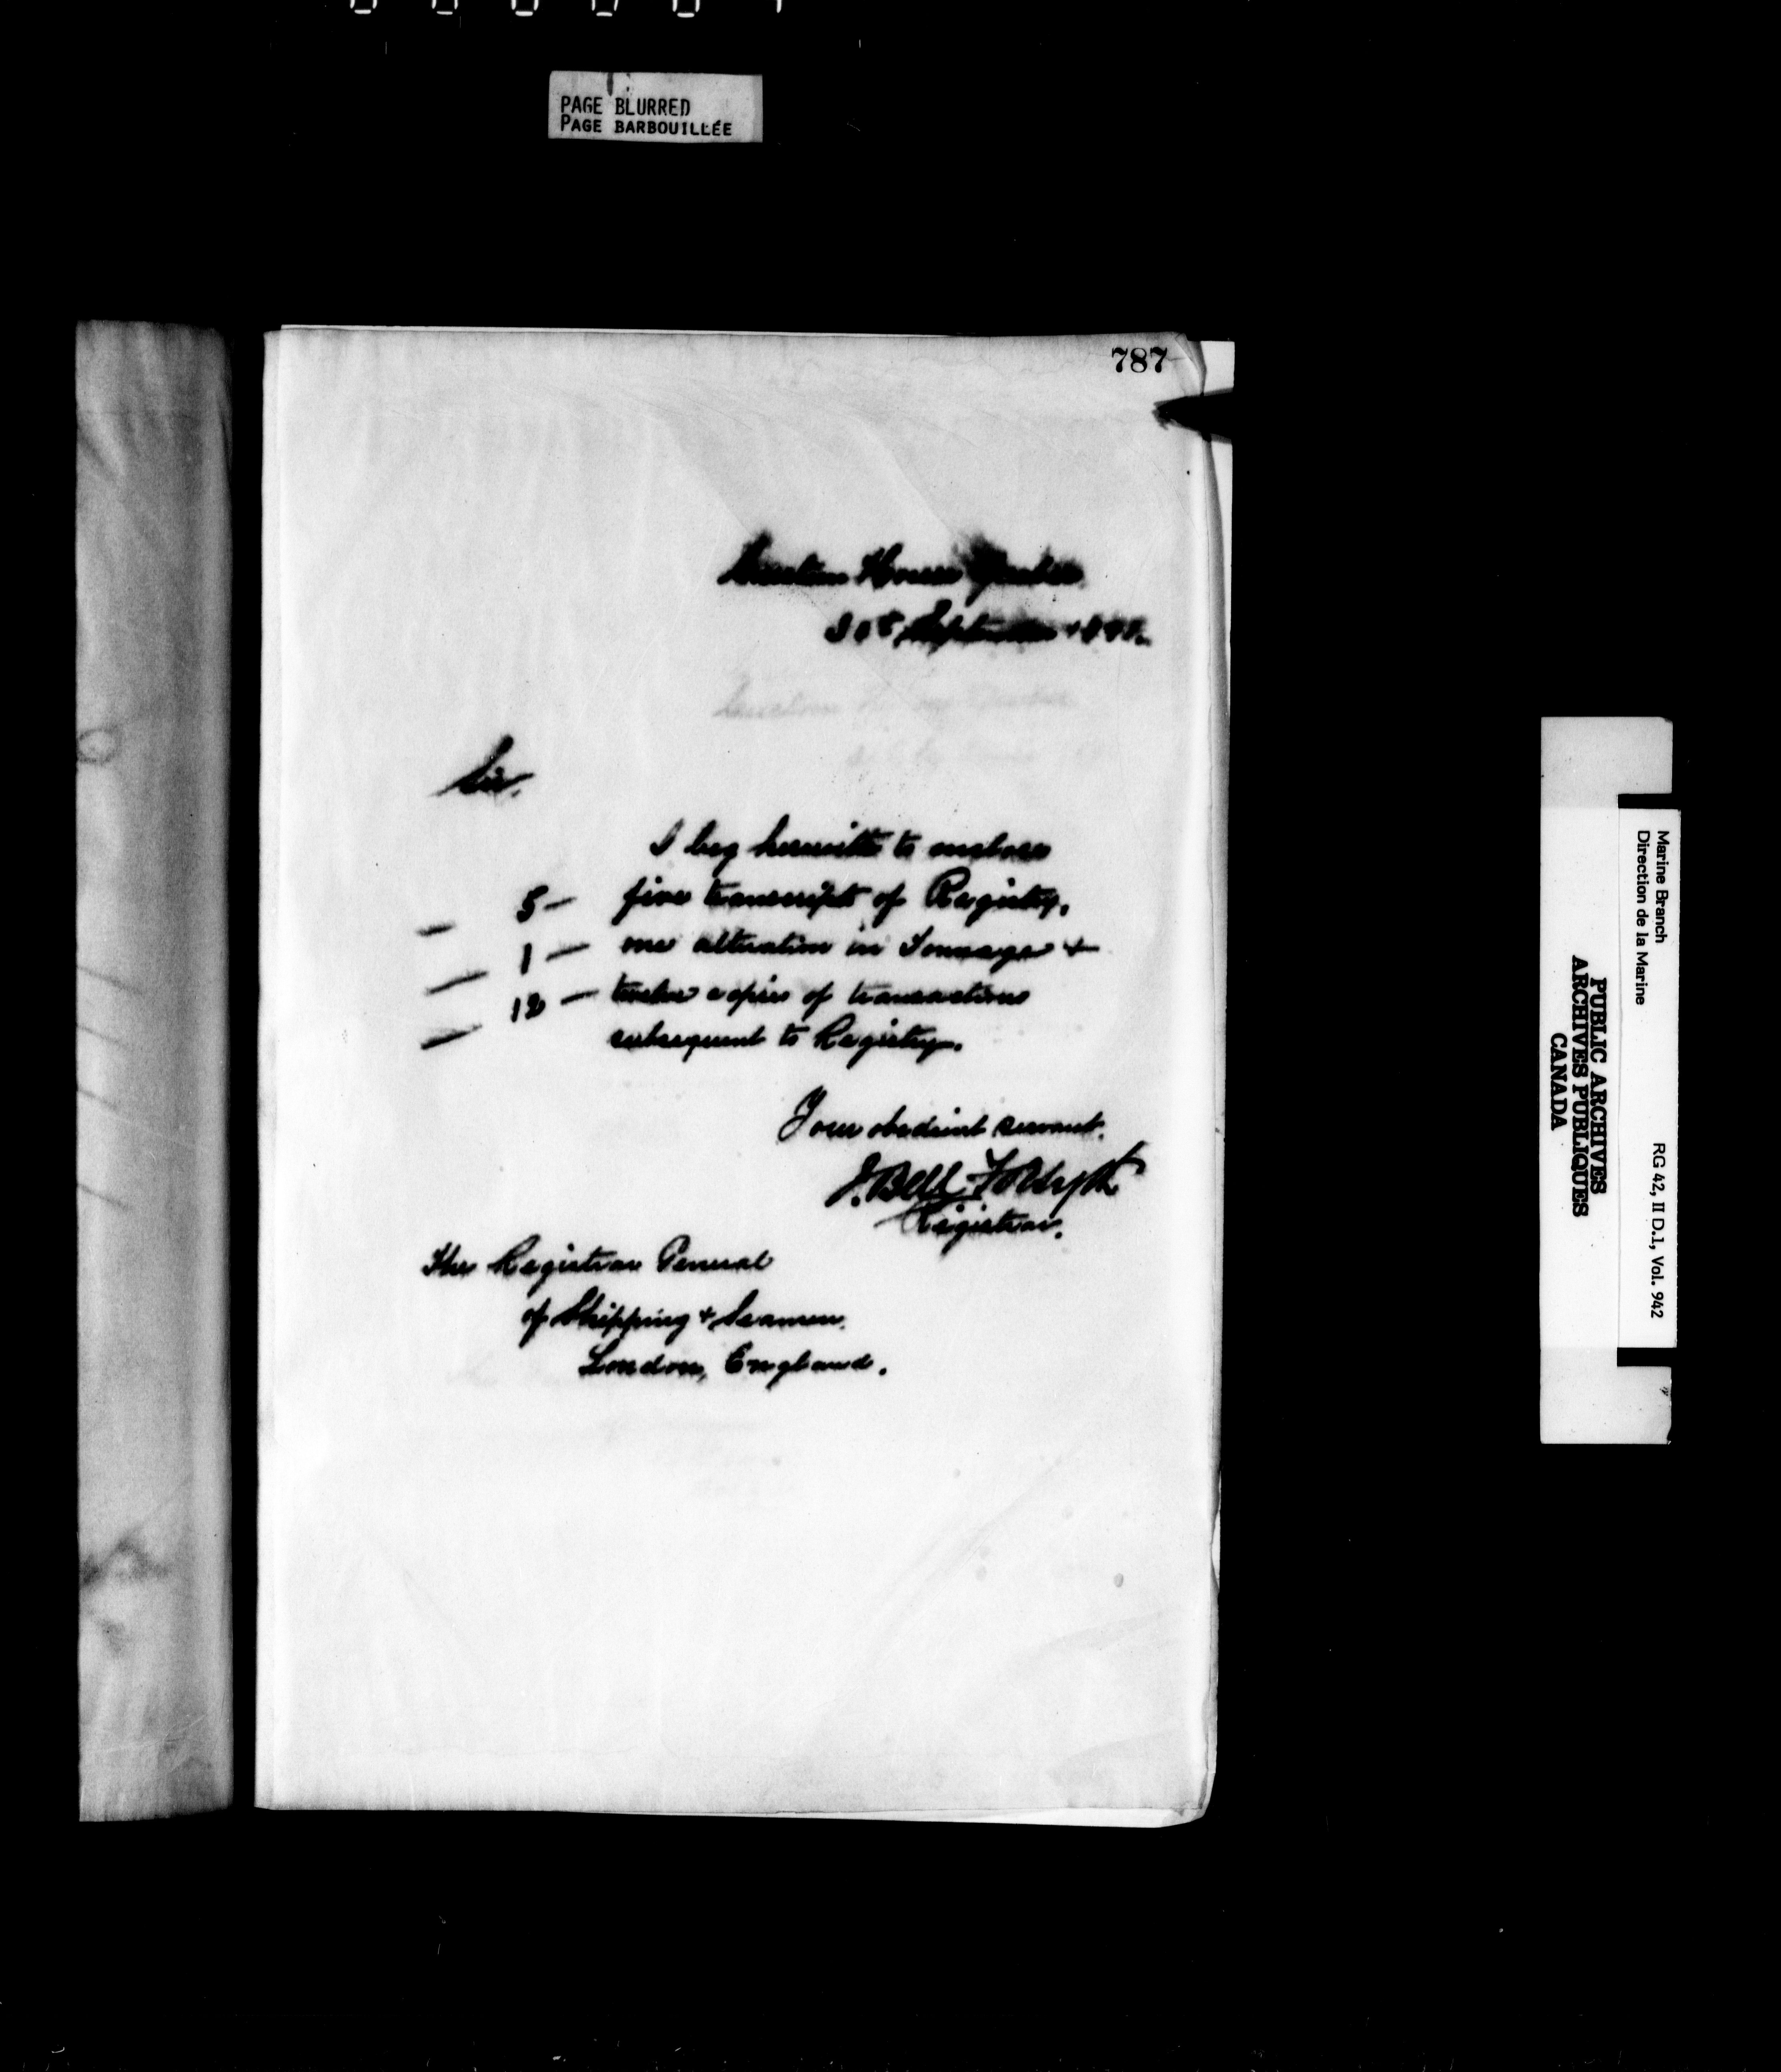 PAGE BLURRED
PAGE BARBOUILLÉE
787
Custom House Quebec
September
Sir,
I beg herewith to enclose
5 — five transcripts of Registry,
1 — one alteration in Tonnage +
12 — twelve copies of transactions
subsequent to Registry.
Your obedient servant.
J. Bell Forsyth
Registrar.
The Registrar General
of Shipping + Seamen.
London, England.
Marine Branch
Direction de la Marine
RG 42, II D.1, Vol. 942
PUBLIC ARCHIVES
ARCHIVES PUBLIQUES
CANADA